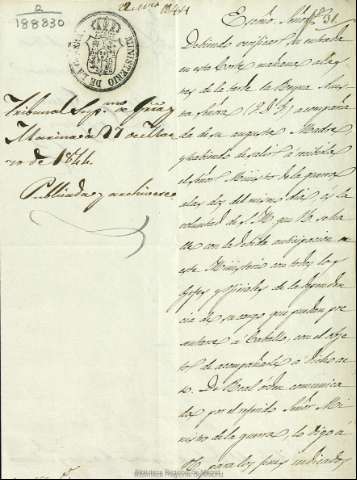 a
188830
MINISTERIO DE LA
Tribunal Sup.mo de Grra y
Marina de 27 de
ro de 1844.
Publicada y archivese
Excmo. Señor
Debiendo verificar su entrada
en esta Corte mañana a las
tres de la tarde la Reyna Nues-
tra Señora (Q.D.G.) acompaña-
da de su augusta Madre,
y debiendo salir á recibirla
el Señor Ministro de la guerra
a las dos del mismo dia, es la
voluntad de S.M. que V.E. se ha-
lle con la debida anticipacion en
este Ministerio con todos los
Gefes y Oficiales de la dependen-
cia de su cargo que puedan pre-
sentarse á Caballo, con el obje-
to de acompañarle á dicho ac-
to. De Real órden comunica-
da por el referido Señor Mi-
nistro de la guerra, lo digo á
V.E. para los fines indicados
Biblioteca Regional de Madrid